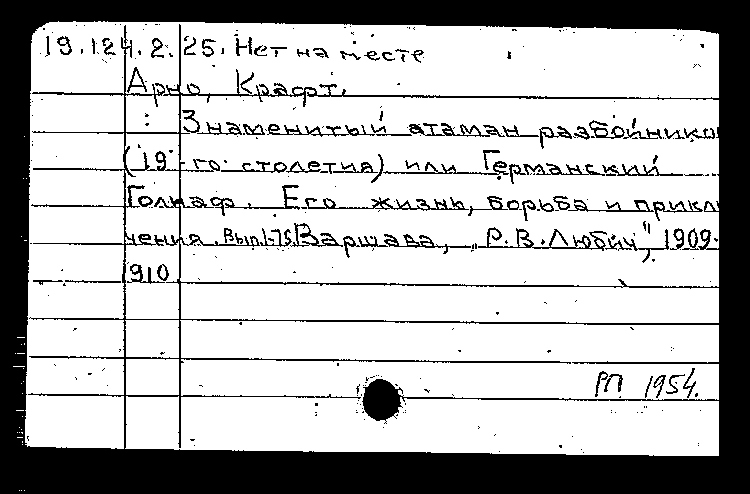 19.124.2.25. Нет на месте
Арно, Крафт.
: Знаменитый атаман разбойнико
(19-го столетия) или Германский
Голиаф. Его жизнь, борьба и приклю
чения. Вып. 1-75. Варшава, „Р.В. Любич", 1909-
1910
РП 1954.